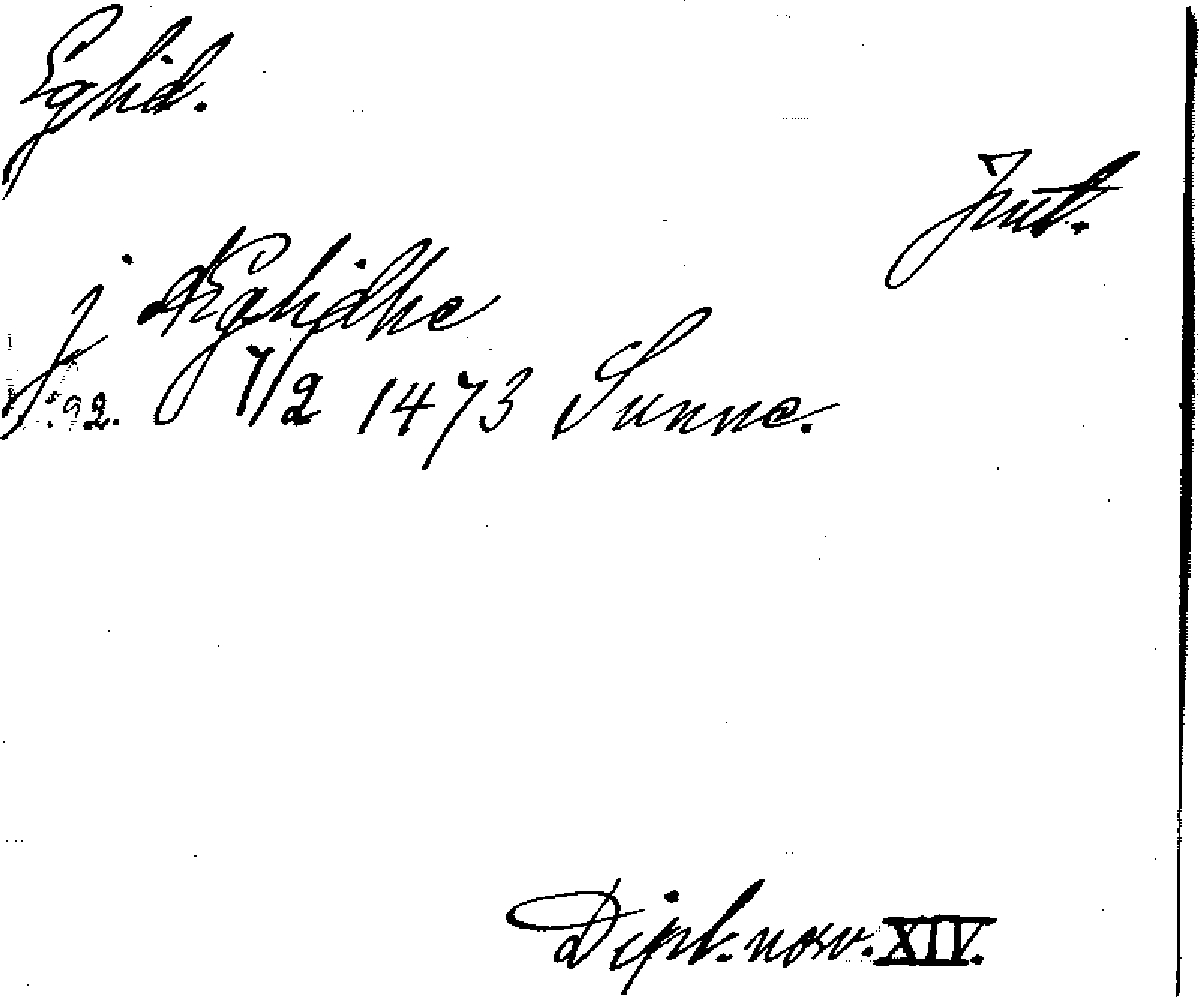 Eglid.
Jmt.
j Æglidhe
s. 92. 7/2 1473 Sunne.
Dipl. norv. XIV.